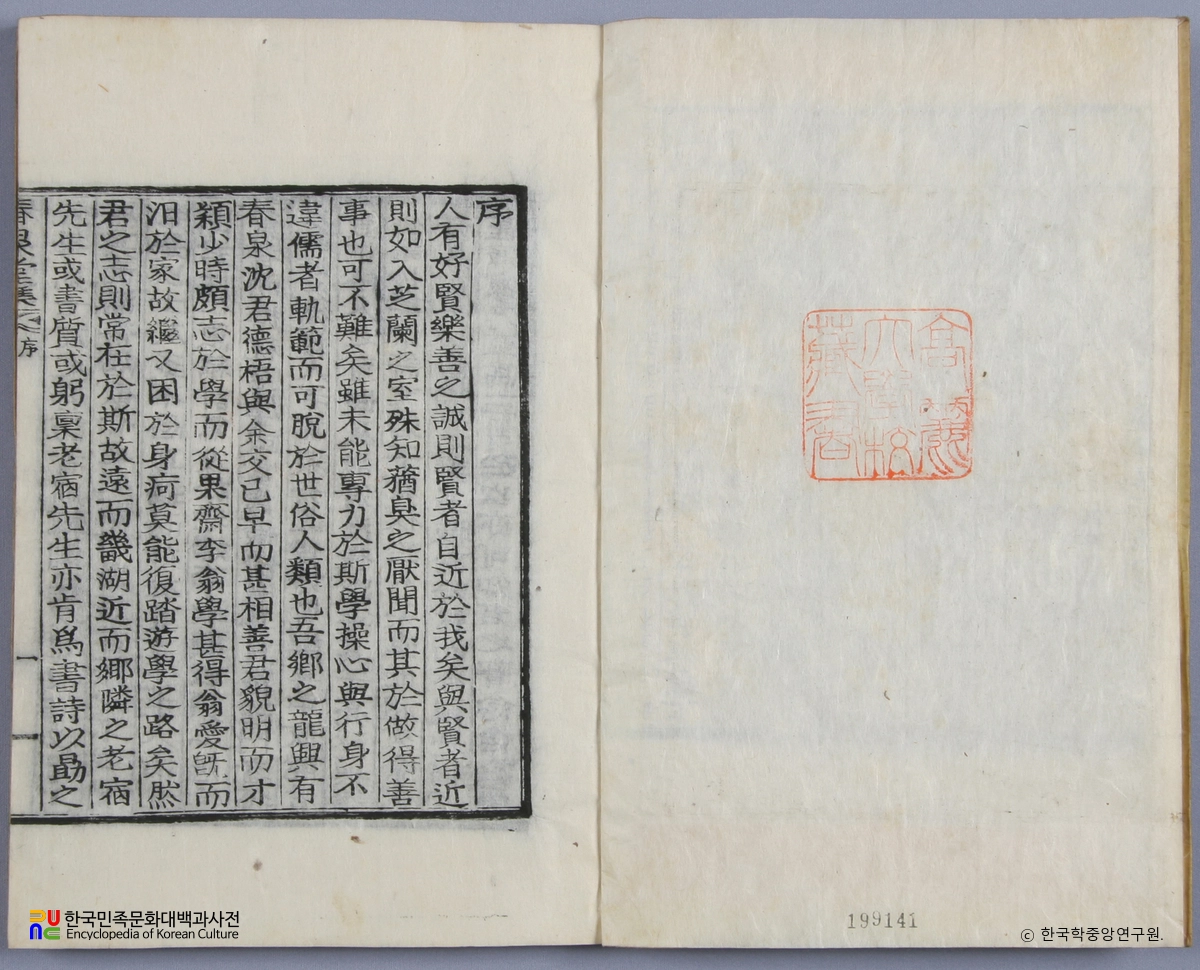 高麗
大學校
藏書
序
人有好賢樂善之誠則賢者自近於我矣與賢者近
則如入芝蘭之室殊知蕕臭之厭聞而其於做得善
事也可不難矣雖未能專力於斯學操心與行身不
違儒者軌範而可脫於世俗人類也吾鄉之龍興有
春泉沈君德梧與余交已早而甚相善君貌明而才
穎少時頗志於學而從果齋李翁學甚得翁愛旣而
汨於家故繼又困於身痾莫能復踏遊學之路矣然
君之志則常在於斯故遠而畿湖近而鄉隣之老宿
先生或書質或躬稟老宿先生亦肯爲書詩以勗之
序
一
199141
한국민족문화대백과사전
Encyclopedia of Korean Culture
ⓒ 한국학중앙연구원.